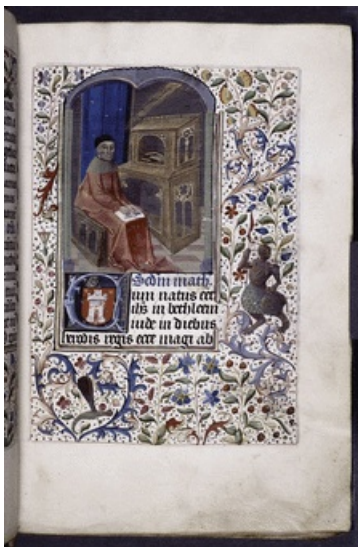 Scdm math
Cum natus eet
ihs in bethleem
iude in diebus
herodis regis ecce magi ab